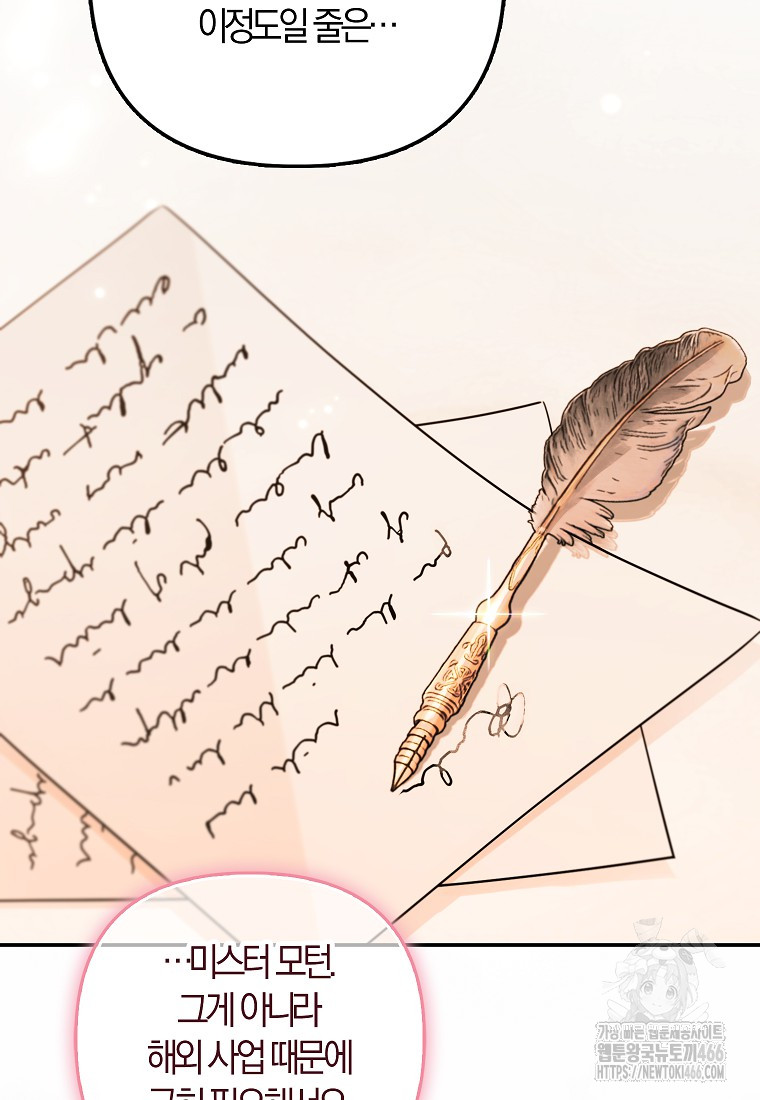 이정도일 줄은…
…미스터 모턴.
그게 아니라
해외 사업 때문에
급히 필요해서요
가장 빠른 웹툰제공사이트
웹툰왕국뉴토끼466
HTTPS://NEWTOKI466.COM